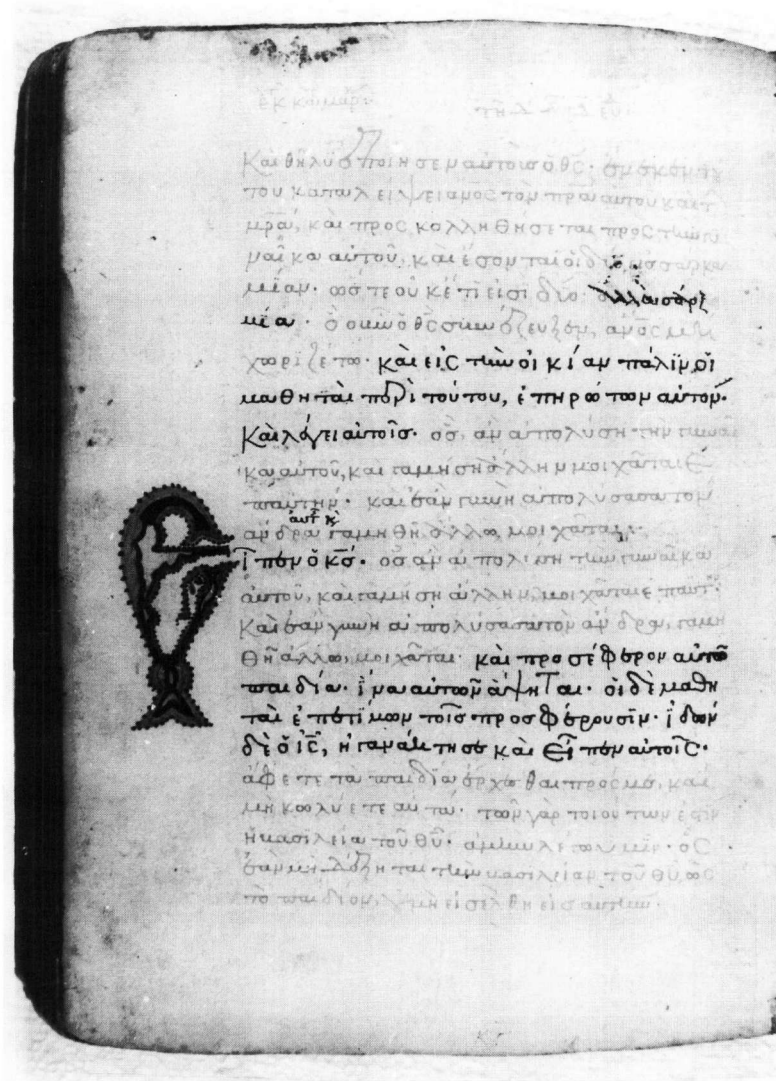 Καὶ θῆλυ ἐποίησεν αὐτοὺς ὁ θς· ἕνεκεν
του καταλείψει ανος τὸν πρα αυτου καὶ τ
μρα, καὶ προσκολληθήσεται προς την γυ
ναῖκα αυτοῦ, καὶ ἔσονται οἱ δύο εἰς σαρκα
μίαν· ὥστε οὐκέτι εἰσι δύο· ἀλλὰ σὰρξ
μία· ὁ οὖν ὁ θς συνέζευξεν, ανος μὴ
χωριζέτω· καὶ εἰς τὴν οἰκίαν πάλιν οἱ
μαθηταὶ περὶ τούτου, ἐπηρώτων αὐτόν·
Καὶ λέγει αὐτοῖς· ὃς ἂν ἀπολύση την γυναῖ
κα αυτοῦ, καὶ γαμήση ἄλλην μοιχᾶται ἐ
π αυτήν· καὶ ἐὰν γυνὴ ἀπολύσασα τὸν
ανδρα γαμηθῆ ἄλλω, μοιχᾶται·
Εἶπεν ὁ κς· ὃς ἂν ἀπολύση τὴν γυναῖκα
αὐτοῦ, καὶ γαμήση ἄλλην, μοιχᾶται ἐπ αυτ
Καὶ ἐὰν γυνὴ ἀπολύσασα τὸν ἄνδρα, γαμη
θῆ ἄλλω, μοιχᾶται· καὶ προσέφερον αὐτῶ
παιδία· ἵνα αὐτῶν ἅψηται· οἱ δὲ μαθη
ταὶ ἐπετίμων τοῖς προσφέρουσιν· ἰδὼν
δὲ ὁ ις, ἠγανάκτησε καὶ εἶπεν αὐτοῖς·
ἄφετε τὰ παιδία ἔρχεσθαι πρός με, καὶ
μὴ κωλύετε αυτά· τῶν γὰρ τοιούτων ἐστὶν
ἡ βασιλεία τοῦ θυ· ἀμὴν λέγω ὑμῖν· ὃς
ἐὰν μὴ δέξηται τὴν βασιλείαν τοῦ θυ ὡς
τὸ παιδίον, οὐ μὴ εἰσέλθη εἰς αὐτήν·